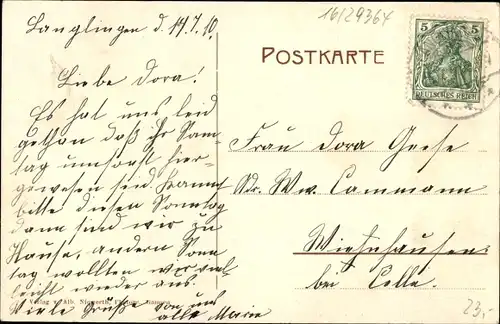 Langlingen d. 14.7.10.
16/29364
POSTKARTE
5 5
DEUTSCHES REICH
Liebe Dora!
Es hat uns leid
gethan daß ihr Sonn
tag umsonst hier
gewesen seid. Kommt
bitte diesen Sonntag
dann sind wir zu
Hause, andern Sonn
tag wollten wir viel
leicht wieder aus.
Viele Grüße von uns
alle Marie
Frau Dora Geese
Adr. Ww. Cammann
Wienhausen
bei Celle.
Verlag v. Alb.
23,-